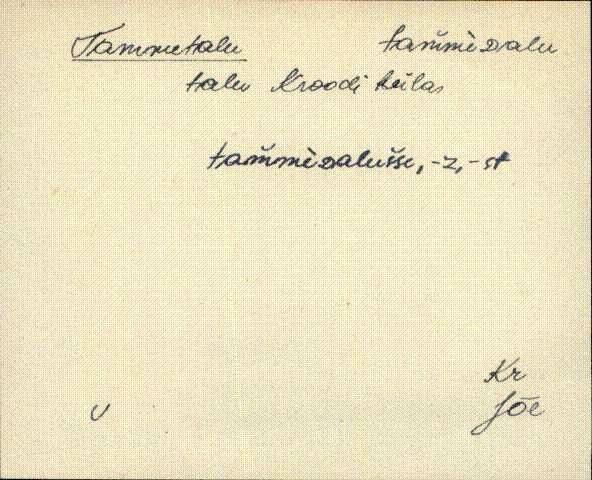 Tammetalu tam̆mèᴅalu
talu Kroodi külas
tam̆mèᴅalus̆se, -z, -st
Kr
Jõe
V